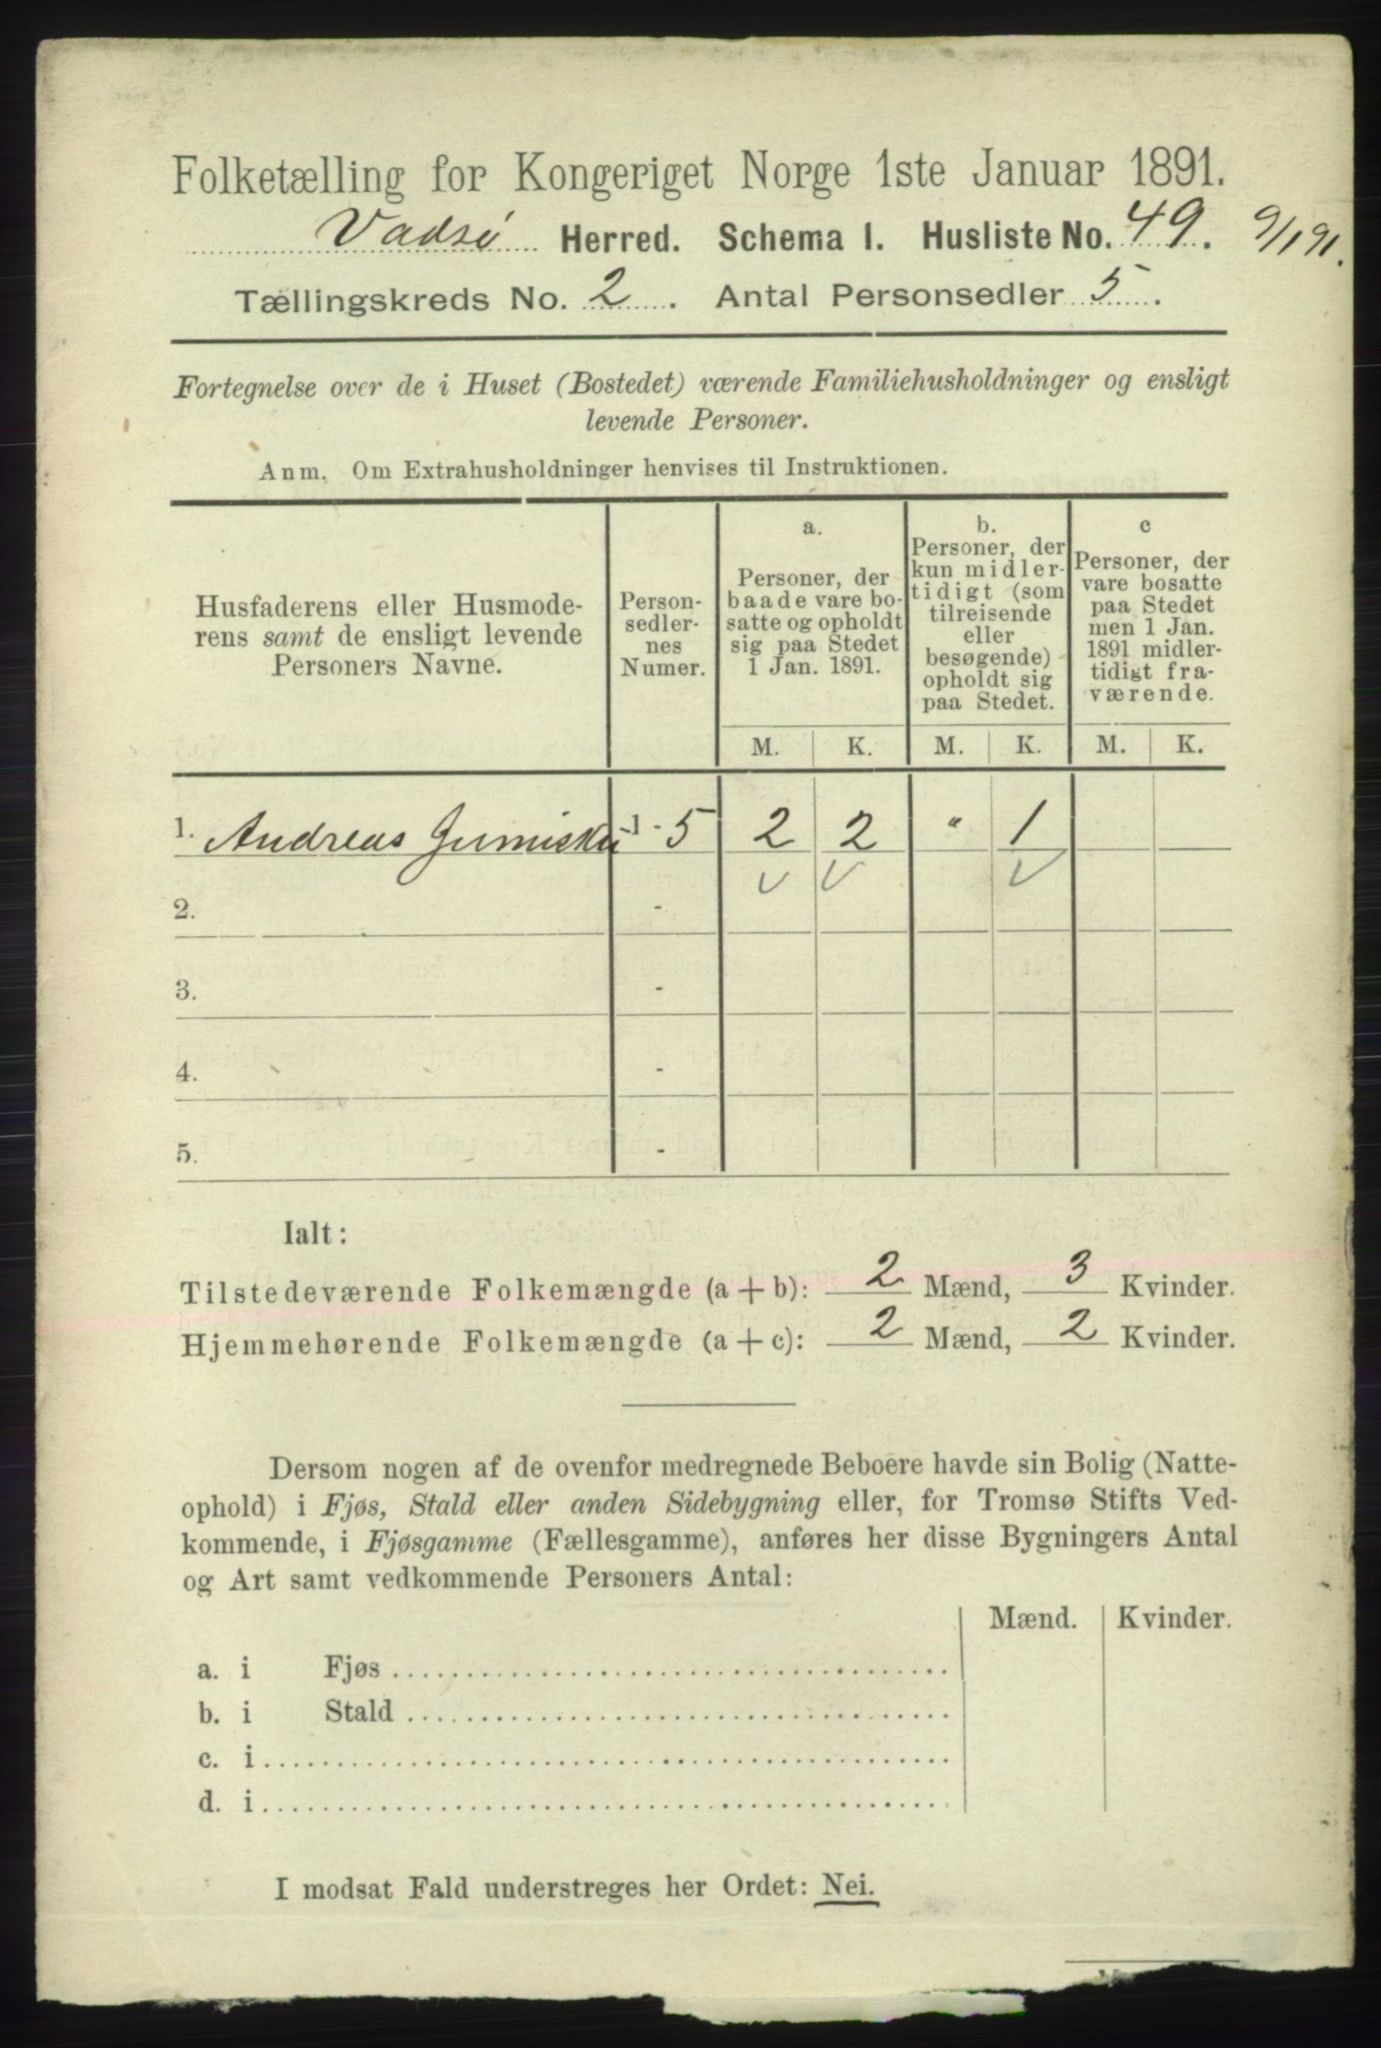 Folketælling for Kongeriget Norge 1ste Januar 1891.
Vadsø Herred. Schema I. Husliste No. 49. 9/1 91.
Tællingskreds No. 2. Antal Personsedler 5.
Fortegnelse over de i Huset (Bostedet) værende Familiehusholdninger og ensligt
levende Personer.
Anm. Om Extrahusholdninger henvises til Instruktionen.
Husfaderens eller Husmode-
rens samt de ensligt levende
Personers Navne.
Person-
sedler-
nes
Numer.
a.
Personer, der
baade vare bo-
satte og opholdt
sig paa Stedet
1 Jan. 1891.
b.
Personer, der
kun midler-
tidigt (som
tilreisende
eller
besøgende)
opholdt sig
paa Stedet.
c
Personer, der
vare bosatte
paa Stedet
men 1 Jan.
1891 midler-
tidigt fra-
værende.
M. K. M. K. M. K.
1. Andreas 1 - 5 2 2 " 1
2. -
3. -
4. -
5. -
Ialt:
Tilstedeværende Folkemængde (a + b): 2 Mænd, 3 Kvinder.
Hjemmehørende Folkemængde (a + c): 2 Mænd, 2 Kvinder.
Dersom nogen af de ovenfor medregnede Beboere havde sin Bolig (Natte-
ophold) i Fjøs, Stald eller anden Sidebygning eller, for Tromsø Stifts Ved-
kommende, i Fjøsgamme (Fællesgamme), anføres her disse Bygningers Antal
og Art samt vedkommende Personers Antal:
Mænd. Kvinder.
a. i Fjøs
b. i Stald
c. i
d. i
I modsat Fald understreges her Ordet: Nei.